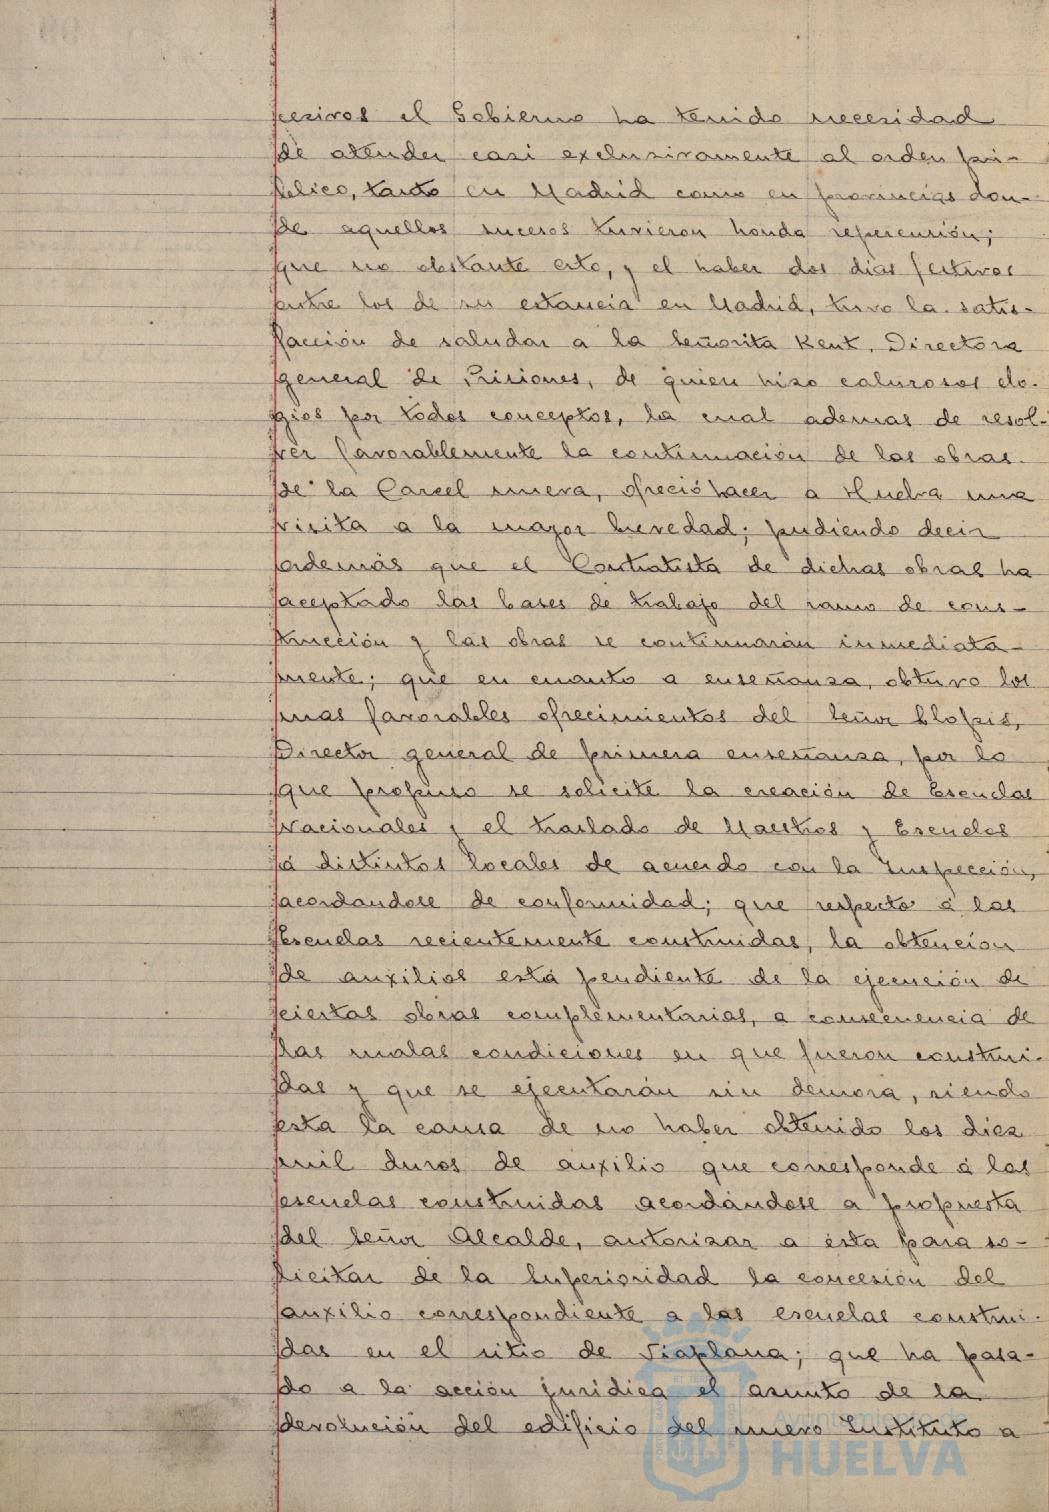 cesivos el Gobierno ha tenido necesidad
de atender casi exclusivamente al orden pú-
blico, tanto en Madrid como en provincias don-
de aquellos sucesos tuvieron honda repercusión;
que no obstante esto, y el haber dos dias festivos
entre los de su estancia en Madrid, tuvo la satis-
facción de saludar a la Señorita Kent, Directora
general de Prisiones, de quien hizo calurosos elo-
gios por todos conceptos, la cual ademas de resol-
ver favorablemente la continuación de las obras
de la Carcel nueva, ofreció hacer a Huelva una
visita a la mayor brevedad; pudiendo decir
además que el Contratista de dichas obras ha
aceptado las bases de trabajo del ramo de cons-
trucción y las obras se continuarán inmediata-
mente; que en cuanto a enseñanza, obtuvo los
mas favorables ofrecimientos del Señor Llopis,
Director general de primera enseñanza, por lo
que propuso se solicite la creación de Escuelas
Nacionales y el traslado de Maestros y Escuelas
á distintos locales de acuerdo con la Inspección,
acordandose de conformidad; que respecto á las
Escuelas recientemente construidas, la obtención
de auxilios está pendiente de la ejecución de
ciertas obras complementarias, a consecuencia de
las malas condiciones en que fueron construi-
das y que se ejecutarán sin demora, siendo
esta la causa de no haber obtenido los diez
mil duros de auxilio que corresponde á las
escuelas construidas acordándose a propuesta
del Señor Alcalde, autorizar a ésta para so-
licitar de la Superioridad la concesión del
auxilio correspondiente a las escuelas construi-
das en el sitio de Viaplana; que ha pasa-
do a la acción juridica el asunto de la
devolución del edificio del nuevo Instituto a
Ayuntamiento de
HUELVA